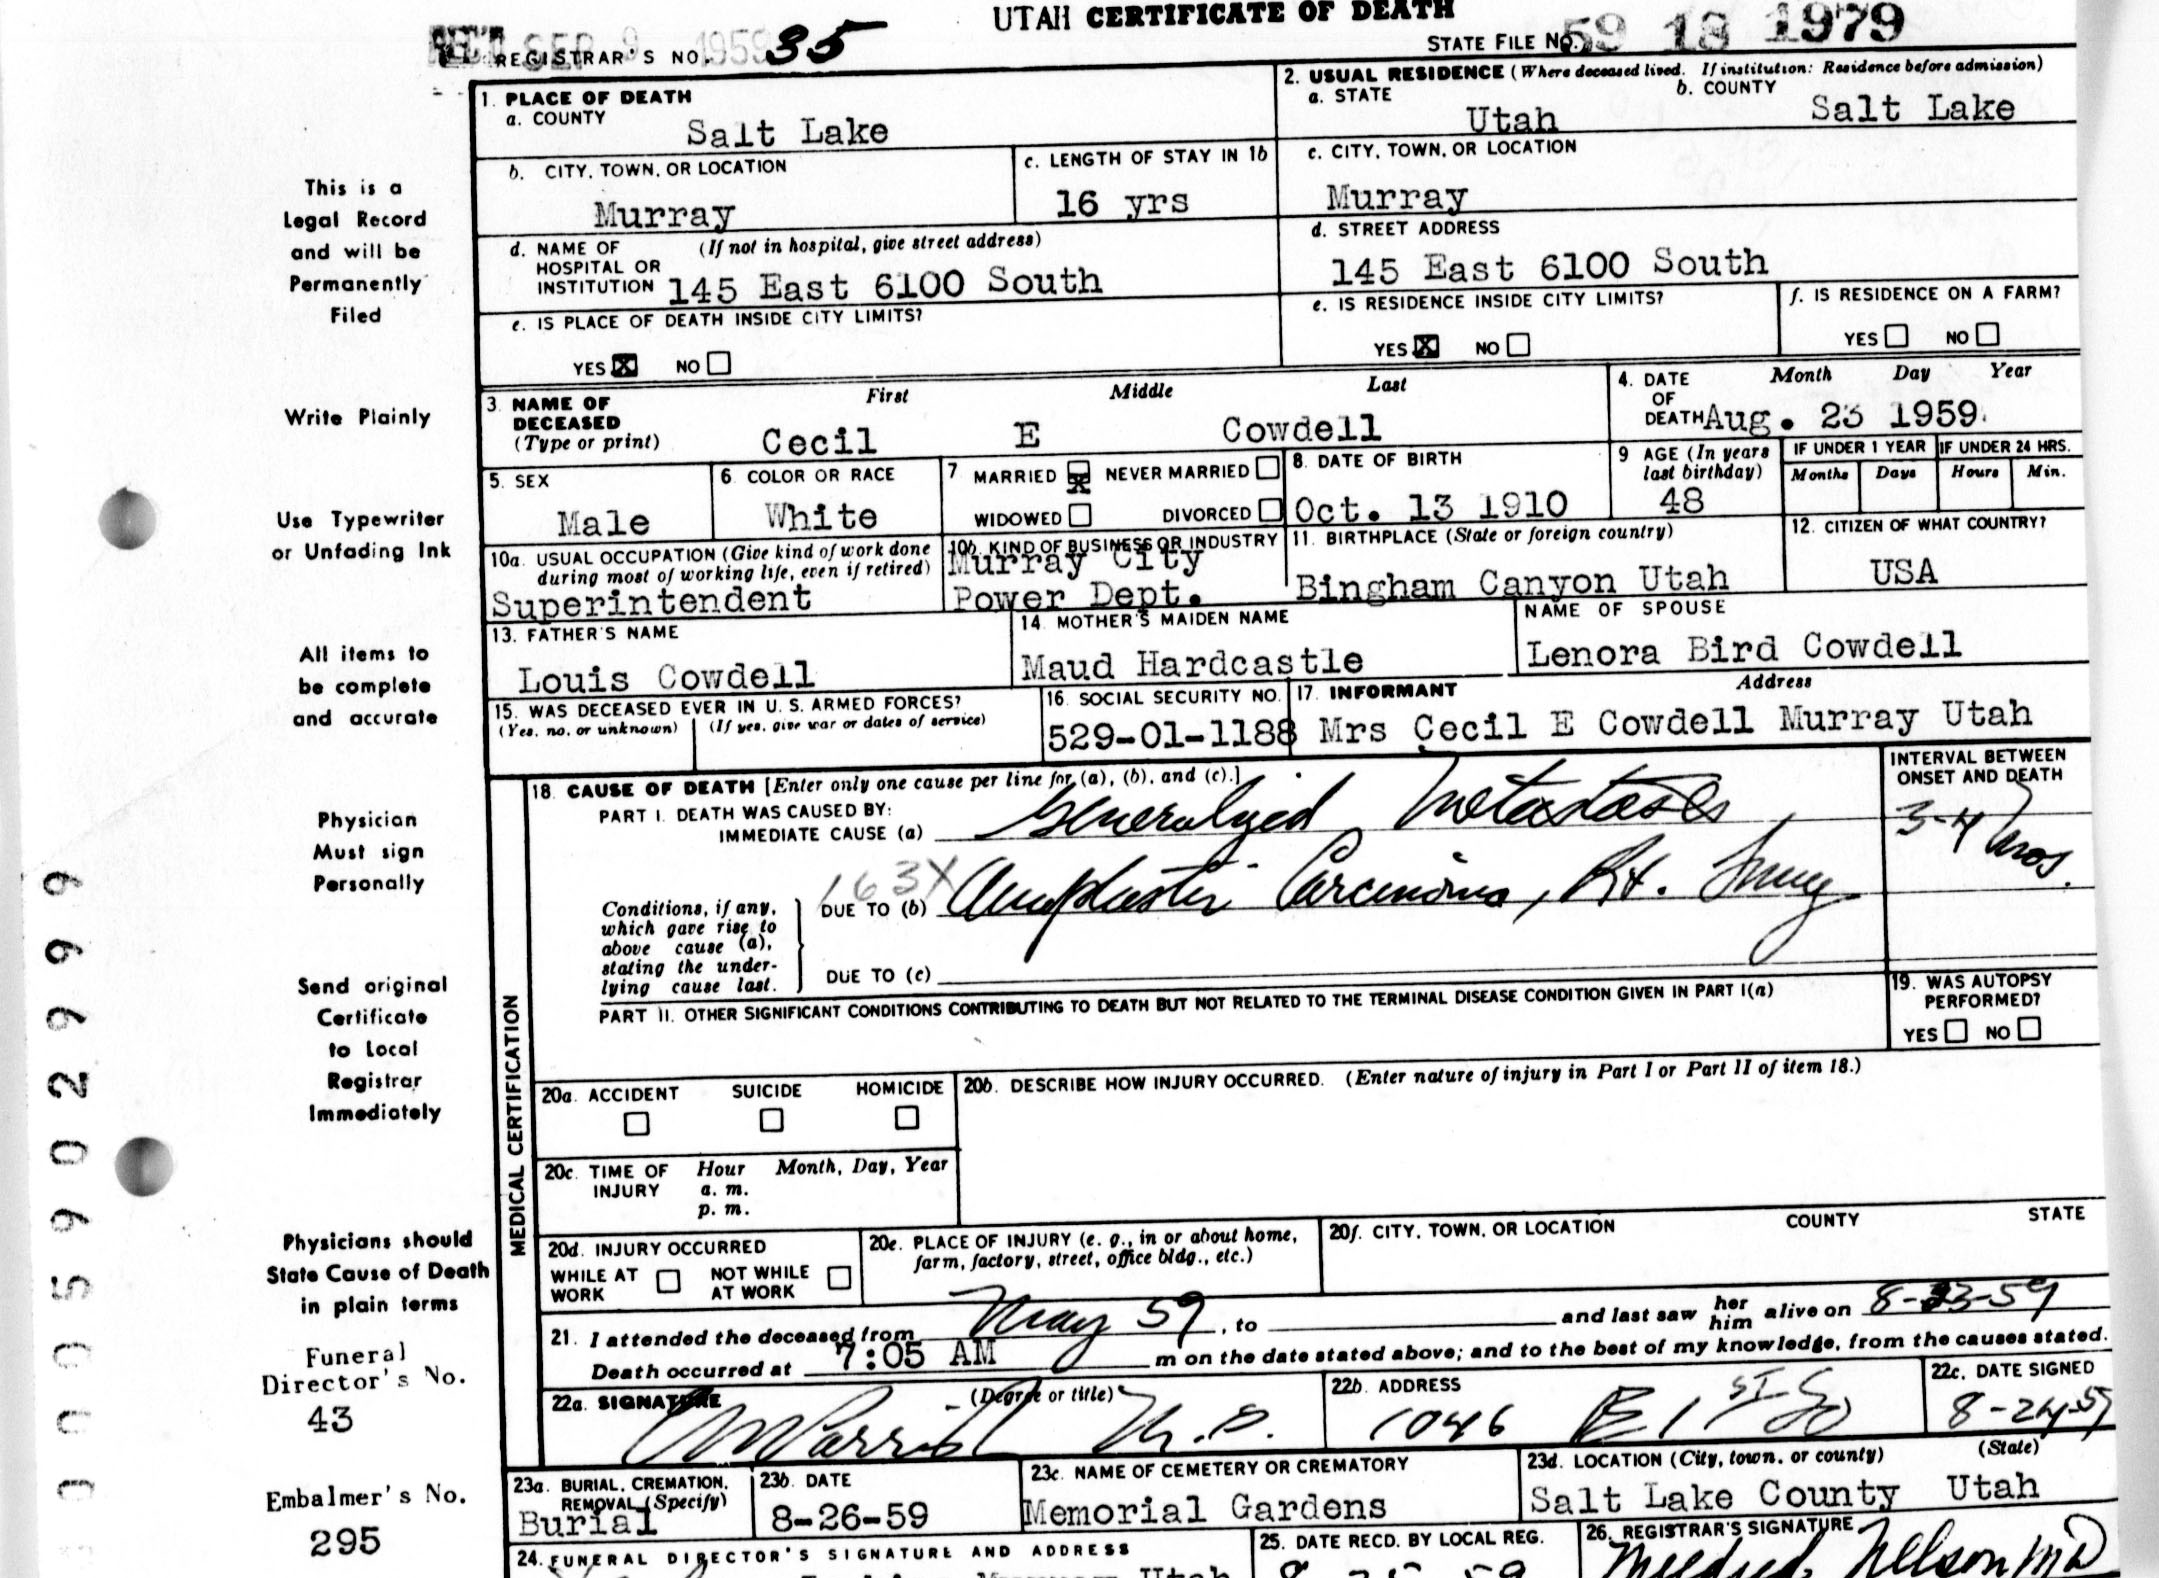 UTAH CERTIFICATE OF DEATH
SEP 9 1959
REGISTRAR'S NO. 35
STATE FILE NO. 59 18 1979
1. PLACE OF DEATH
a. COUNTY
Salt Lake
2. USUAL RESIDENCE (Where deceased lived. If institution: Residence before admission)
a. STATE b. COUNTY
Utah Salt Lake
b. CITY, TOWN, OR LOCATION
Murray
c. LENGTH OF STAY IN 1b
16 yrs
c. CITY, TOWN, OR LOCATION
Murray
d. NAME OF (If not in hospital, give street address)
HOSPITAL OR
INSTITUTION 145 East 6100 South
d. STREET ADDRESS
145 East 6100 South
e. IS PLACE OF DEATH INSIDE CITY LIMITS?
YES X NO
e. IS RESIDENCE INSIDE CITY LIMITS?
YES X NO
f. IS RESIDENCE ON A FARM?
YES NO
3. NAME OF First Middle Last
DECEASED
(Type or print) Cecil E Cowdell
4. DATE Month Day Year
OF
DEATH Aug. 23 1959
5. SEX
Male
6. COLOR OR RACE
White
7 MARRIED X NEVER MARRIED
WIDOWED DIVORCED
8. DATE OF BIRTH
Oct. 13 1910
9 AGE (In years
last birthday)
48
IF UNDER 1 YEAR IF UNDER 24 HRS.
Months Days Hours Min.
10a. USUAL OCCUPATION (Give kind of work done
during most of working life, even if retired)
Superintendent
10b. KIND OF BUSINESS OR INDUSTRY
Murray City
Power Dept.
11. BIRTHPLACE (State or foreign country)
Bingham Canyon Utah
12. CITIZEN OF WHAT COUNTRY?
USA
13. FATHER'S NAME
Louis Cowdell
14. MOTHER'S MAIDEN NAME
Maud Hardcastle
NAME OF SPOUSE
Lenora Bird Cowdell
15. WAS DECEASED EVER IN U. S. ARMED FORCES?
(Yes, no, or unknown) (If yes, give war or dates of service)
16. SOCIAL SECURITY NO.
529-01-1188
17. INFORMANT Address
Mrs Cecil E Cowdell Murray Utah
18. CAUSE OF DEATH [Enter only one cause per line for (a), (b), and (c).]
PART I. DEATH WAS CAUSED BY:
IMMEDIATE CAUSE (a) Generalized Metastases
INTERVAL BETWEEN
ONSET AND DEATH
3-4 mos.
163X
Conditions, if any,
which gave rise to
above cause (a),
stating the under-
lying cause last.
DUE TO (b) Anaplastic Carcinoma, Rt. Lung
DUE TO (c)
PART II. OTHER SIGNIFICANT CONDITIONS CONTRIBUTING TO DEATH BUT NOT RELATED TO THE TERMINAL DISEASE CONDITION GIVEN IN PART I(a)
19. WAS AUTOPSY
PERFORMED?
YES NO
MEDICAL CERTIFICATION
20a. ACCIDENT SUICIDE HOMICIDE
20b. DESCRIBE HOW INJURY OCCURRED. (Enter nature of injury in Part I or Part II of item 18.)
20c. TIME OF Hour Month, Day, Year
INJURY a. m.
p. m.
20d. INJURY OCCURRED
WHILE AT NOT WHILE
WORK AT WORK
20e. PLACE OF INJURY (e. g., in or about home,
farm, factory, street, office bldg., etc.)
20f. CITY, TOWN, OR LOCATION COUNTY STATE
21. I attended the deceased from May 59, to and last saw her him alive on 8-23-59
Death occurred at 7:05 AM m on the date stated above; and to the best of my knowledge, from the causes stated.
22a. SIGNATURE (Degree or title)
M.D.
22b. ADDRESS
1046 E 1st So
22c. DATE SIGNED
8-24-59
23a. BURIAL, CREMATION,
REMOVAL (Specify)
Burial
23b. DATE
8-26-59
23c. NAME OF CEMETERY OR CREMATORY
Memorial Gardens
23d. LOCATION (City, town, or county) (State)
Salt Lake County Utah
24. FUNERAL DIRECTOR'S SIGNATURE AND ADDRESS
Murray Utah
25. DATE RECD. BY LOCAL REG.
26. REGISTRAR'S SIGNATURE
Mildred Nelson MD
This is a
Legal Record
and will be
Permanently
Filed
Write Plainly
Use Typewriter
or Unfading Ink
All items to
be complete
and accurate
Physician
Must sign
Personally
Send original
Certificate
to Local
Registrar
Immediately
Physicians should
State Cause of Death
in plain terms
Funeral
Director's No.
43
Embalmer's No.
295
0005902999